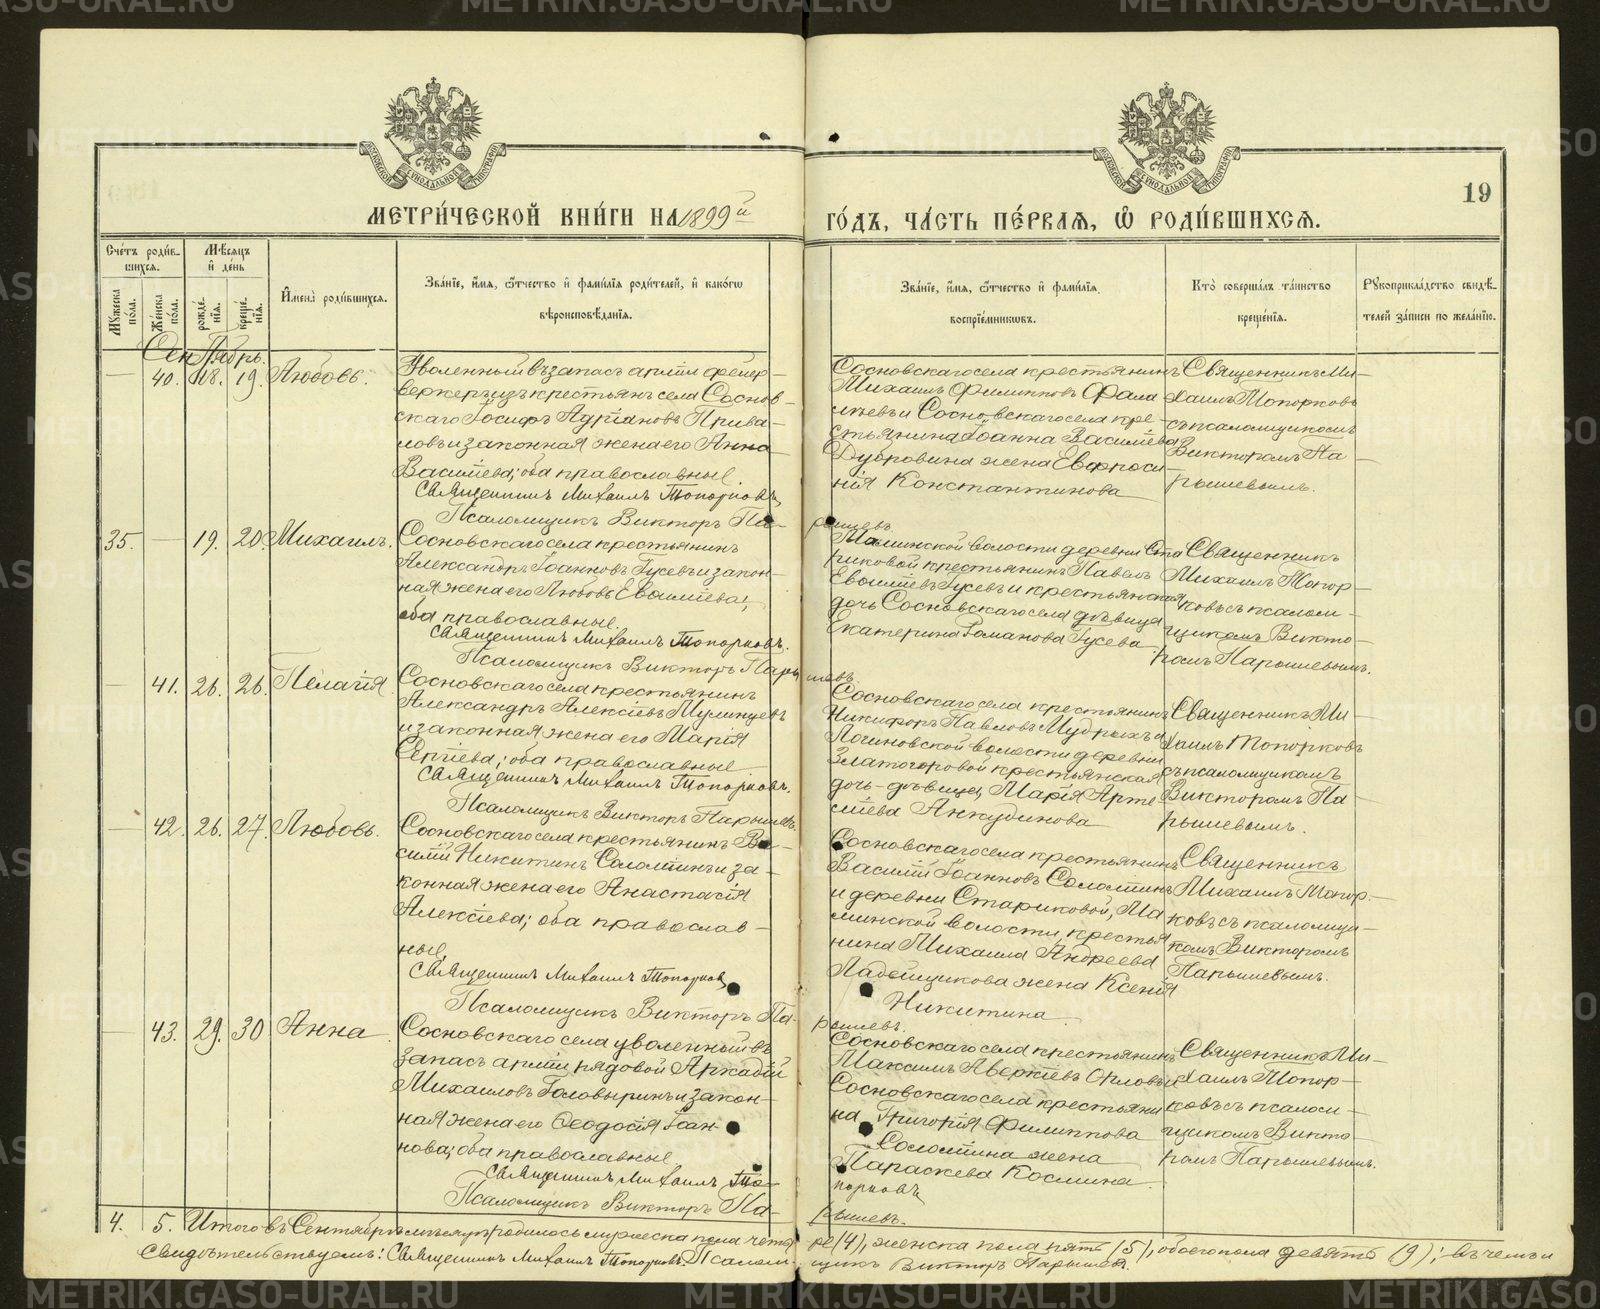 МЕТРИ́ЧЕСКОЙ КНИ́ГИ НА 1899 й
ГО́ДЪ, ЧА́СТЬ ПЕ́РВАѦ, Ѽ РОДИ́ВШИХСѦ.
19
Счетъ роди́вшихсѧ.
Мꙋжеска по́ла.
Же́нска по́ла.
Мѣ́сѧцъ и҆ де́нь
рожде́нїѧ.
креще́нїѧ.
И҆мена̀ роди́вшихсѧ.
Зва́нїе, и҆́мѧ, ѻ҆́тчество и҆ фами́лїѧ роди́телей, и҆ како́гѡ
вѣроисповѣ́данїѧ.
Зва́нїе, и҆́мѧ, ѻ҆́тчество и҆ фами́лїѧ
воспрїе́мникѡвъ.
Кто̀ соверша́лъ та́инство
креще́нїѧ.
Рꙋкоприкла́дство свидѣ́-
телей за́писи по жела́нїю.
Сентябрь.
— 40. 18. 19. Любовь.
Уволенный въ запасъ арміи фейер-
веркеръ изъ крестьянъ села Соснов-
скаго Іосифъ Адріановъ Прива-
ловъ и законная жена его Анна
Васильева; оба православные.
Священникъ Михаилъ Топорковъ,
Псаломщикъ Викторъ Па-
рышевъ.
Сосновскаго села крестьянинъ
Михаилъ Филипповъ Фала
леевъ и Сосновскаго села кре-
стьянина Іоанна Васильева
Дубровина жена Евфроси-
нія Константинова
Священникъ Ми-
хаилъ Топорковъ
съ псаломщикомъ
Викторомъ Па-
рышевымъ.
35. — 19. 20. Михаилъ.
Сосновскаго села крестьянинъ
Александръ Іоанновъ Гусевъ и закон-
ная жена его Любовь Евсиліева;
оба православные.
Священникъ Михаилъ Топорковъ.
Псаломщикъ Викторъ Пары
шевъ.
Маминской волости деревни Ста
риковой крестьянинъ Павелъ
Гусевъ и крестьянская
дочь Сосновскаго села дѣвица
Екатерина Романова Гусева.
Священникъ
Михаилъ Топор-
ковъ съ псалом-
щикомъ Викто-
ромъ Парышевымъ.
— 41. 26. 26. Пелагія.
Сосновскаго села крестьянинъ
Александръ Алексіевъ Мулинцевъ
и законная жена его Марія
Сергіева; оба православные
Священникъ Михаилъ Топорковъ.
Псаломщикъ Викторъ Парышевъ.
Сосновскаго села крестьянинъ
Никифоръ Павловъ Мудрыхъ и
волости деревни
Златогоровой крестьянская
дочь-дѣвица, Марія Арте-
міева Анкудинова
Священникъ Ми-
хаилъ Топорковъ
съ псаломщикомъ
Викторомъ Па-
рышевымъ.
— 42. 26. 27. Любовь.
Сосновскаго села крестьянинъ Ва-
силій Никитинъ Соломинъ и за-
конная жена его Анастасія
Алексіева; оба православ-
ные.
Священникъ Михаилъ Топорковъ,
Псаломщикъ Викторъ Па-
рышевъ.
Сосновскаго села крестьянинъ
Василій Іоанновъ Соломинъ
и деревни Стариковой, Ма
минской волости, крестья
нина Михаила Андреева
Ладейщикова жена Ксенія
Никитина
Священникъ
Михаилъ Топор-
ковъ съ псаломщи-
комъ Викторомъ
Парышевымъ.
— 43. 29. 30 Анна
Сосновскаго села уволенный въ
запасъ арміи рядовой Аркадій
Михаиловъ Головыринъ и закон-
ная жена его Ѳеодосія Іоан-
нова; оба православные
Священникъ Михаилъ То-
порковъ,
Псаломщикъ Викторъ Па-
рышевъ.
Сосновскаго села крестьянинъ
Максимъ Аверкіевъ Орловъ и
Сосновскаго села крестьяни
на Григорія Филиппова
Соломина жена
Параскева Космина.
Священникъ Ми-
хаилъ Топор-
ковъ съ псалом-
щикомъ Викто-
ромъ Парышевымъ.
4. 5. Итого въ Сентябрѣ мѣсяцѣ родилось мужеска пола четы
ре (4), женска пола пять (5), обоего пола девять (9); въ чемъ и
свидѣтельствуемъ: Священникъ Михаилъ Топорковъ. Псалом-
щикъ Викторъ Парышевъ.
METRIKI.GASO-URAL.RU